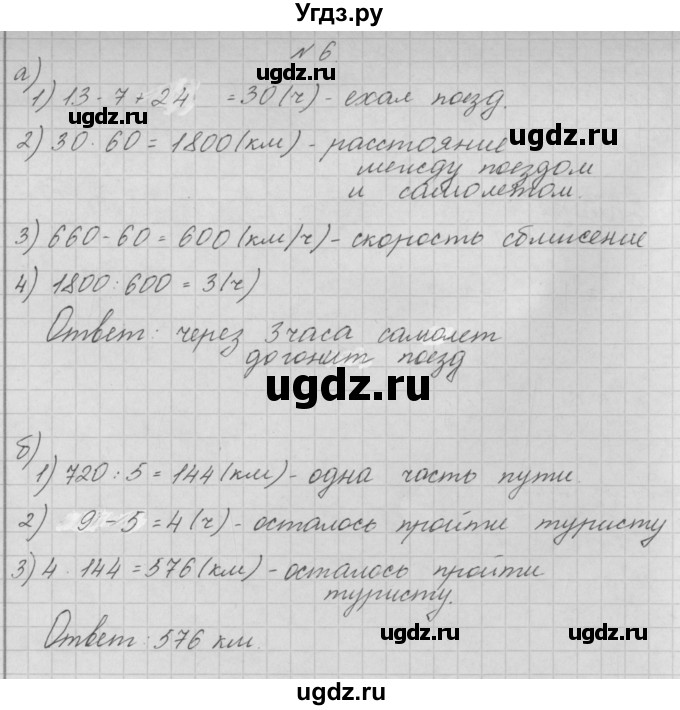 Угдз.ру
№ 6.
а)
1) 13 - 7 + 24 = 30 (ч) - ехал поезд.
ugdz.ru
2) 30 · 60 = 1800 (км) - расстояние
ugdz.ru
между поездом
и самолетом.
3) 660 - 60 = 600 (км/ч) - скорость сближение
4) 1800 : 600 = 3 (ч)
Ответ: через 3 часа самолет
догонит поезд
ugdz.ru
б)
1) 720 : 5 = 144 (км) - одна часть пути
2) 9 - 5 = 4 (ч) - осталось пройти туристу
3) 4 · 144 = 576 (км) - осталось пройти
туристу.
Ответ: 576 км.
ugdz.ru
ugdz.ru
ugdz.ru